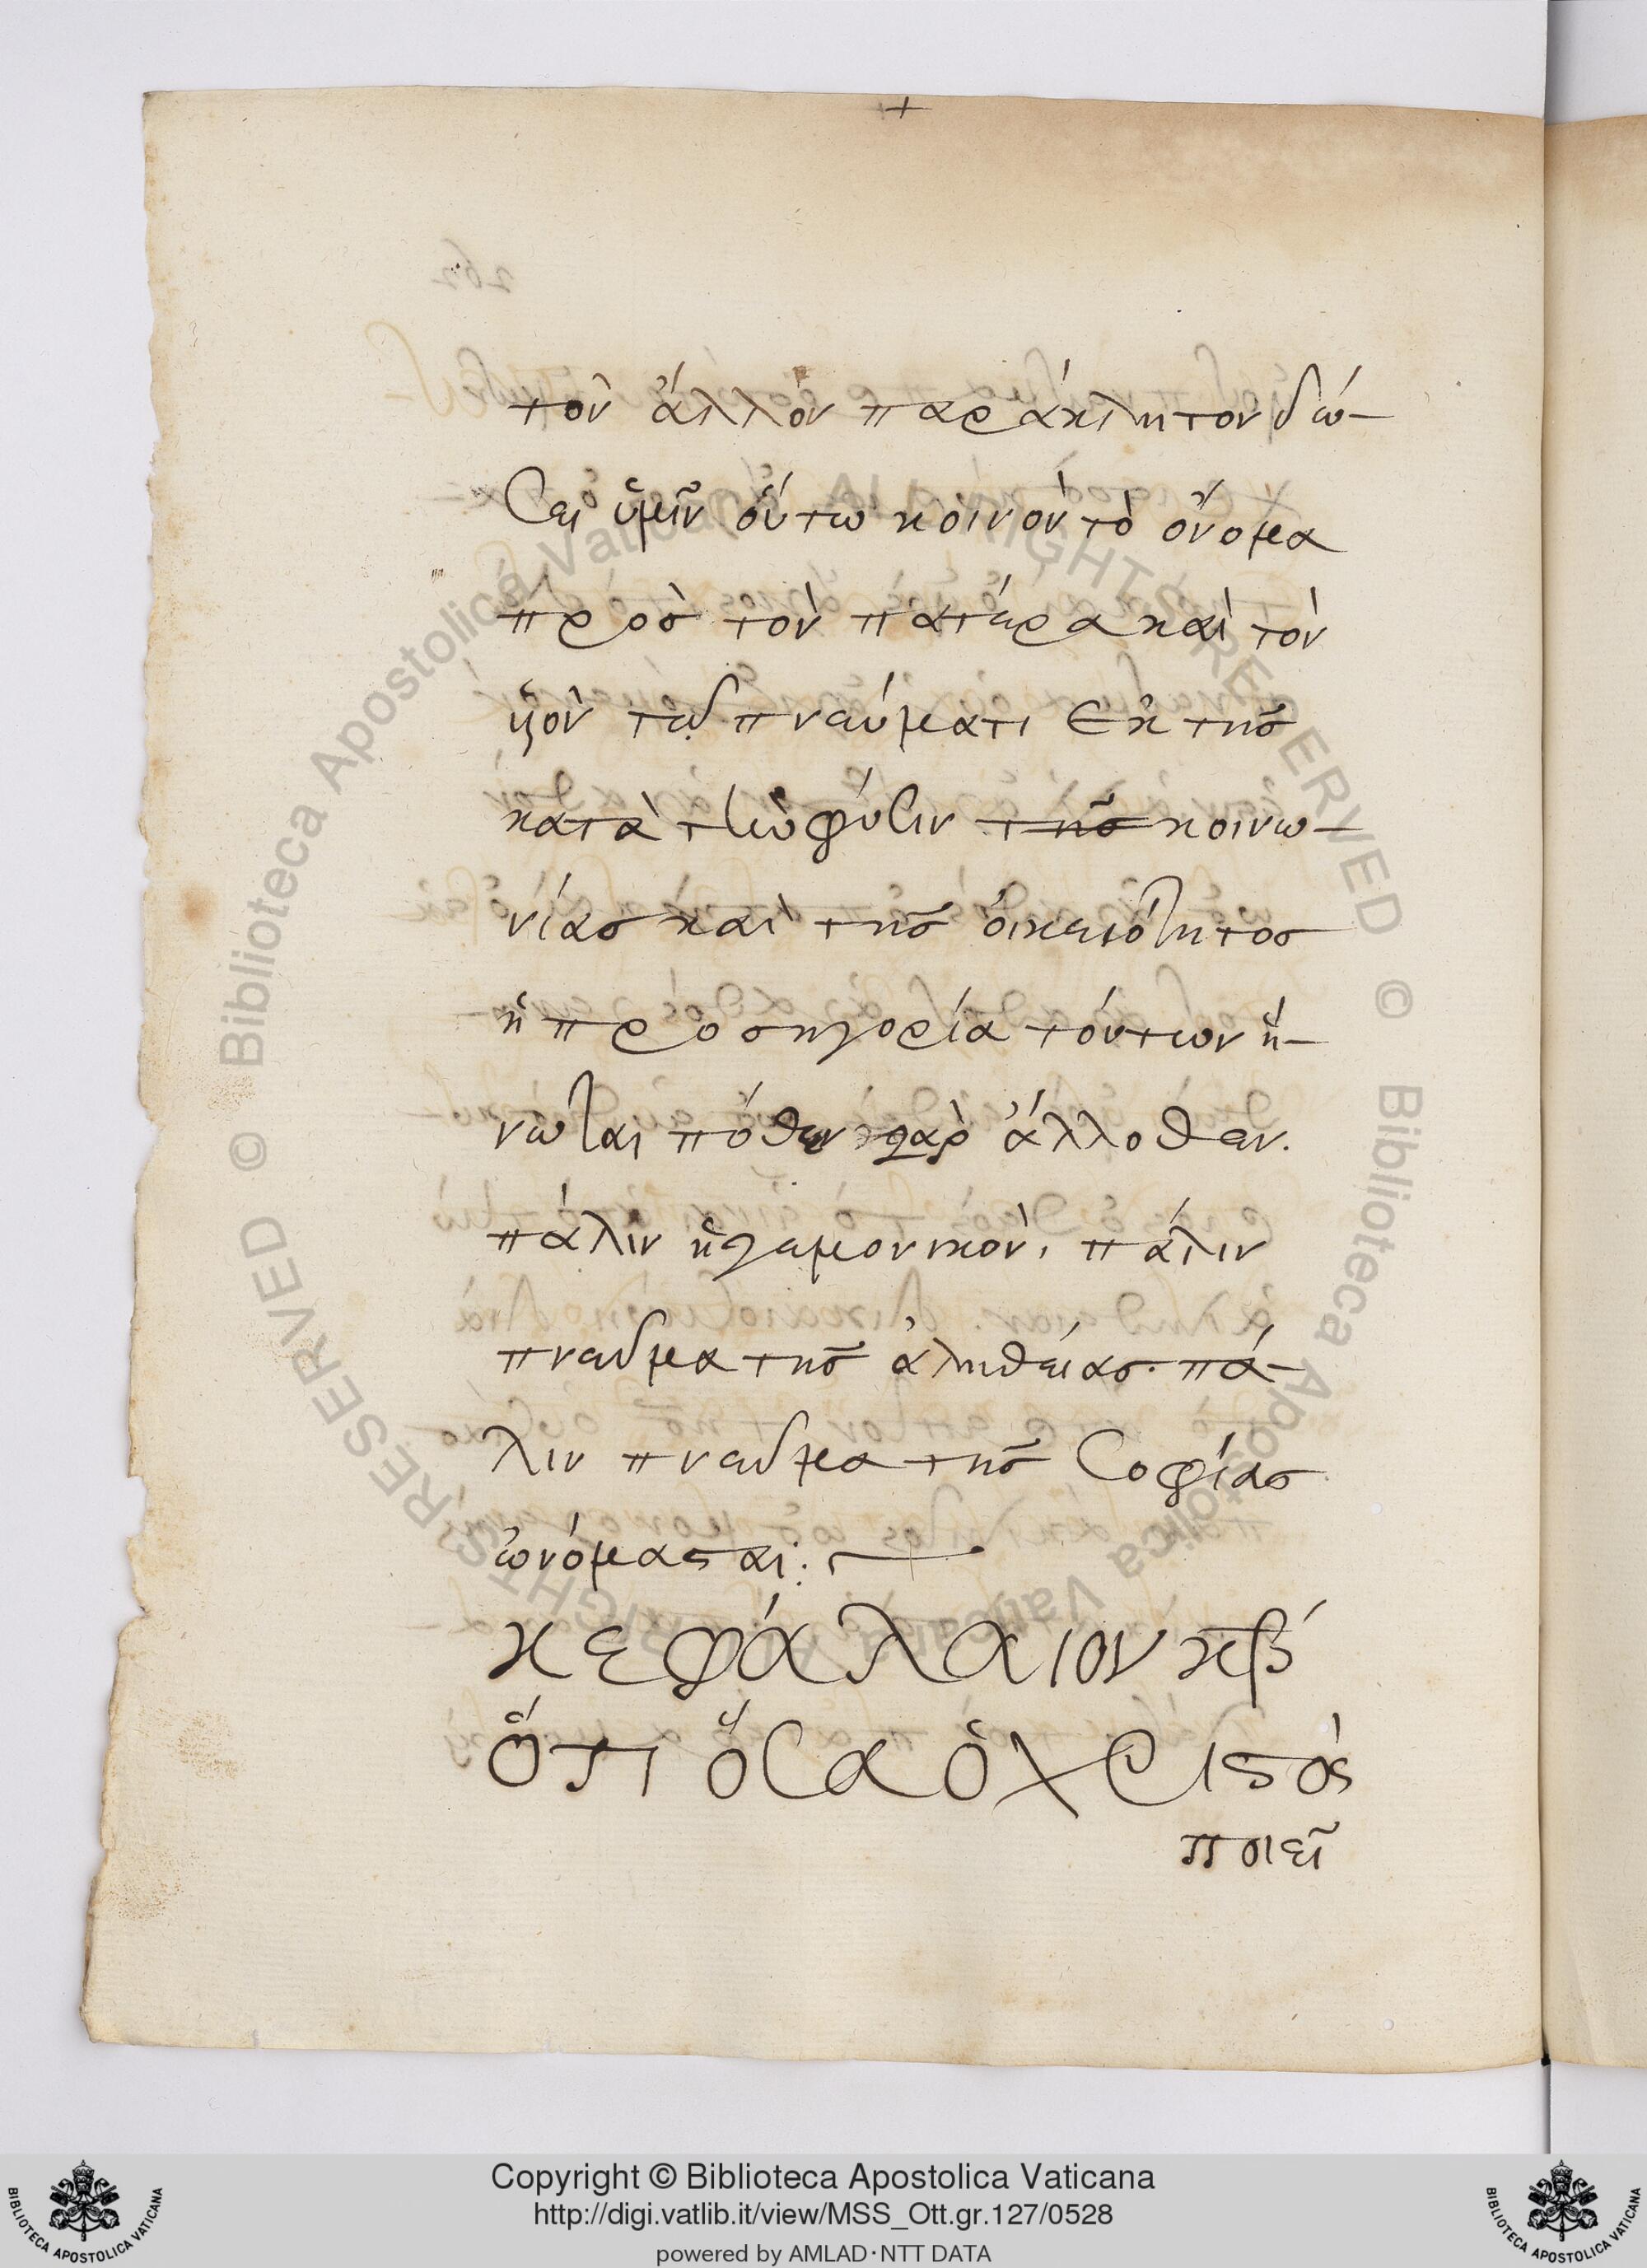 τὸν ἄλλον παράκλητον δώ-
σει ὑμῖν οὕτω κοινὸν τὸ ὄνομα
πρὸς τὸν πατέρα καὶ τὸν
ὑϊὸν τῶ πνεύματι ἐκ τῆς
κατὰ τὴν φύσιν τῆς κοινω-
νίας καὶ τῆς οἰκειότητος
ἡ προσηγορία τόυτων ἥ-
νωται πόθεν γὰρ ἄλλοθεν.
πάλιν ἡγεμονικὸν, πάλιν
πνεῦμα τῆς ἀληθείας. πά-
λιν πνεῦμα τῆς σοφίας
ὠνόμασται:
κεφάλαιον κβ΄
ὅτι ὅσα ὁ χριστὸς
ποιεῖ
© Biblioteca Apostolica Vaticana ALL RIGHTS RESERVED © Biblioteca Apostolica Vaticana ALL RIGHTS RESERVED
BIBLIOTECA APOSTOLICA VATICANA
Copyright © Biblioteca Apostolica Vaticana
http://digi.vatlib.it/view/MSS_Ott.gr.127/0528
powered by AMLAD·NTT DATA
BIBLIOTECA APOSTOLICA VATICANA